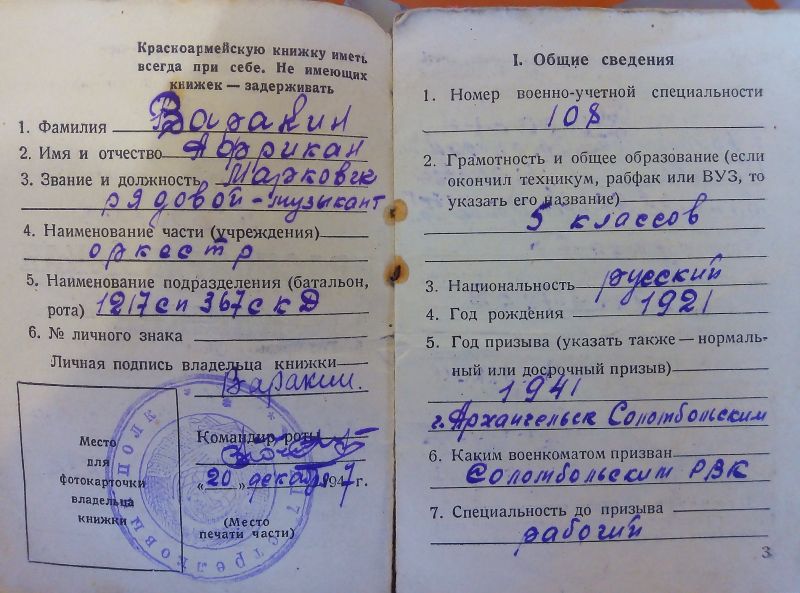 Красноармейскую книжку иметь
всегда при себе. Не имеющих
книжек — задерживать
1. Фамилия Варакин
2. Имя и отчество Африкан
3. Звание и должность Марковск
рядовой - музыкант
4. Наименование части (учреждения)
оркестр
5. Наименование подразделения (батальон,
рота) 1217 сп 367 с к д
6. № личного знака
Личная подпись владельца книжки
Варакин.
Место
для
фотокарточки
владельца
книжки
Командир роты
„20„ декабря 1947 г.
(Место
печати части)
ПОЛК
17 стрелковый
I. Общие сведения
1. Номер военно-учетной специальности
108
2. Грамотность и общее образование (если
окончил техникум, рабфак или ВУЗ, то
указать его название)
5 классов
3. Национальность русский
4. Год рождения 1921
5. Год призыва (указать также — нормаль-
ный или досрочный призыв)
1941
г. Архангельск Соломбольским
6. Каким военкоматом призван
Соломбольским РВК
7. Специальность до призыва
рабочий
3